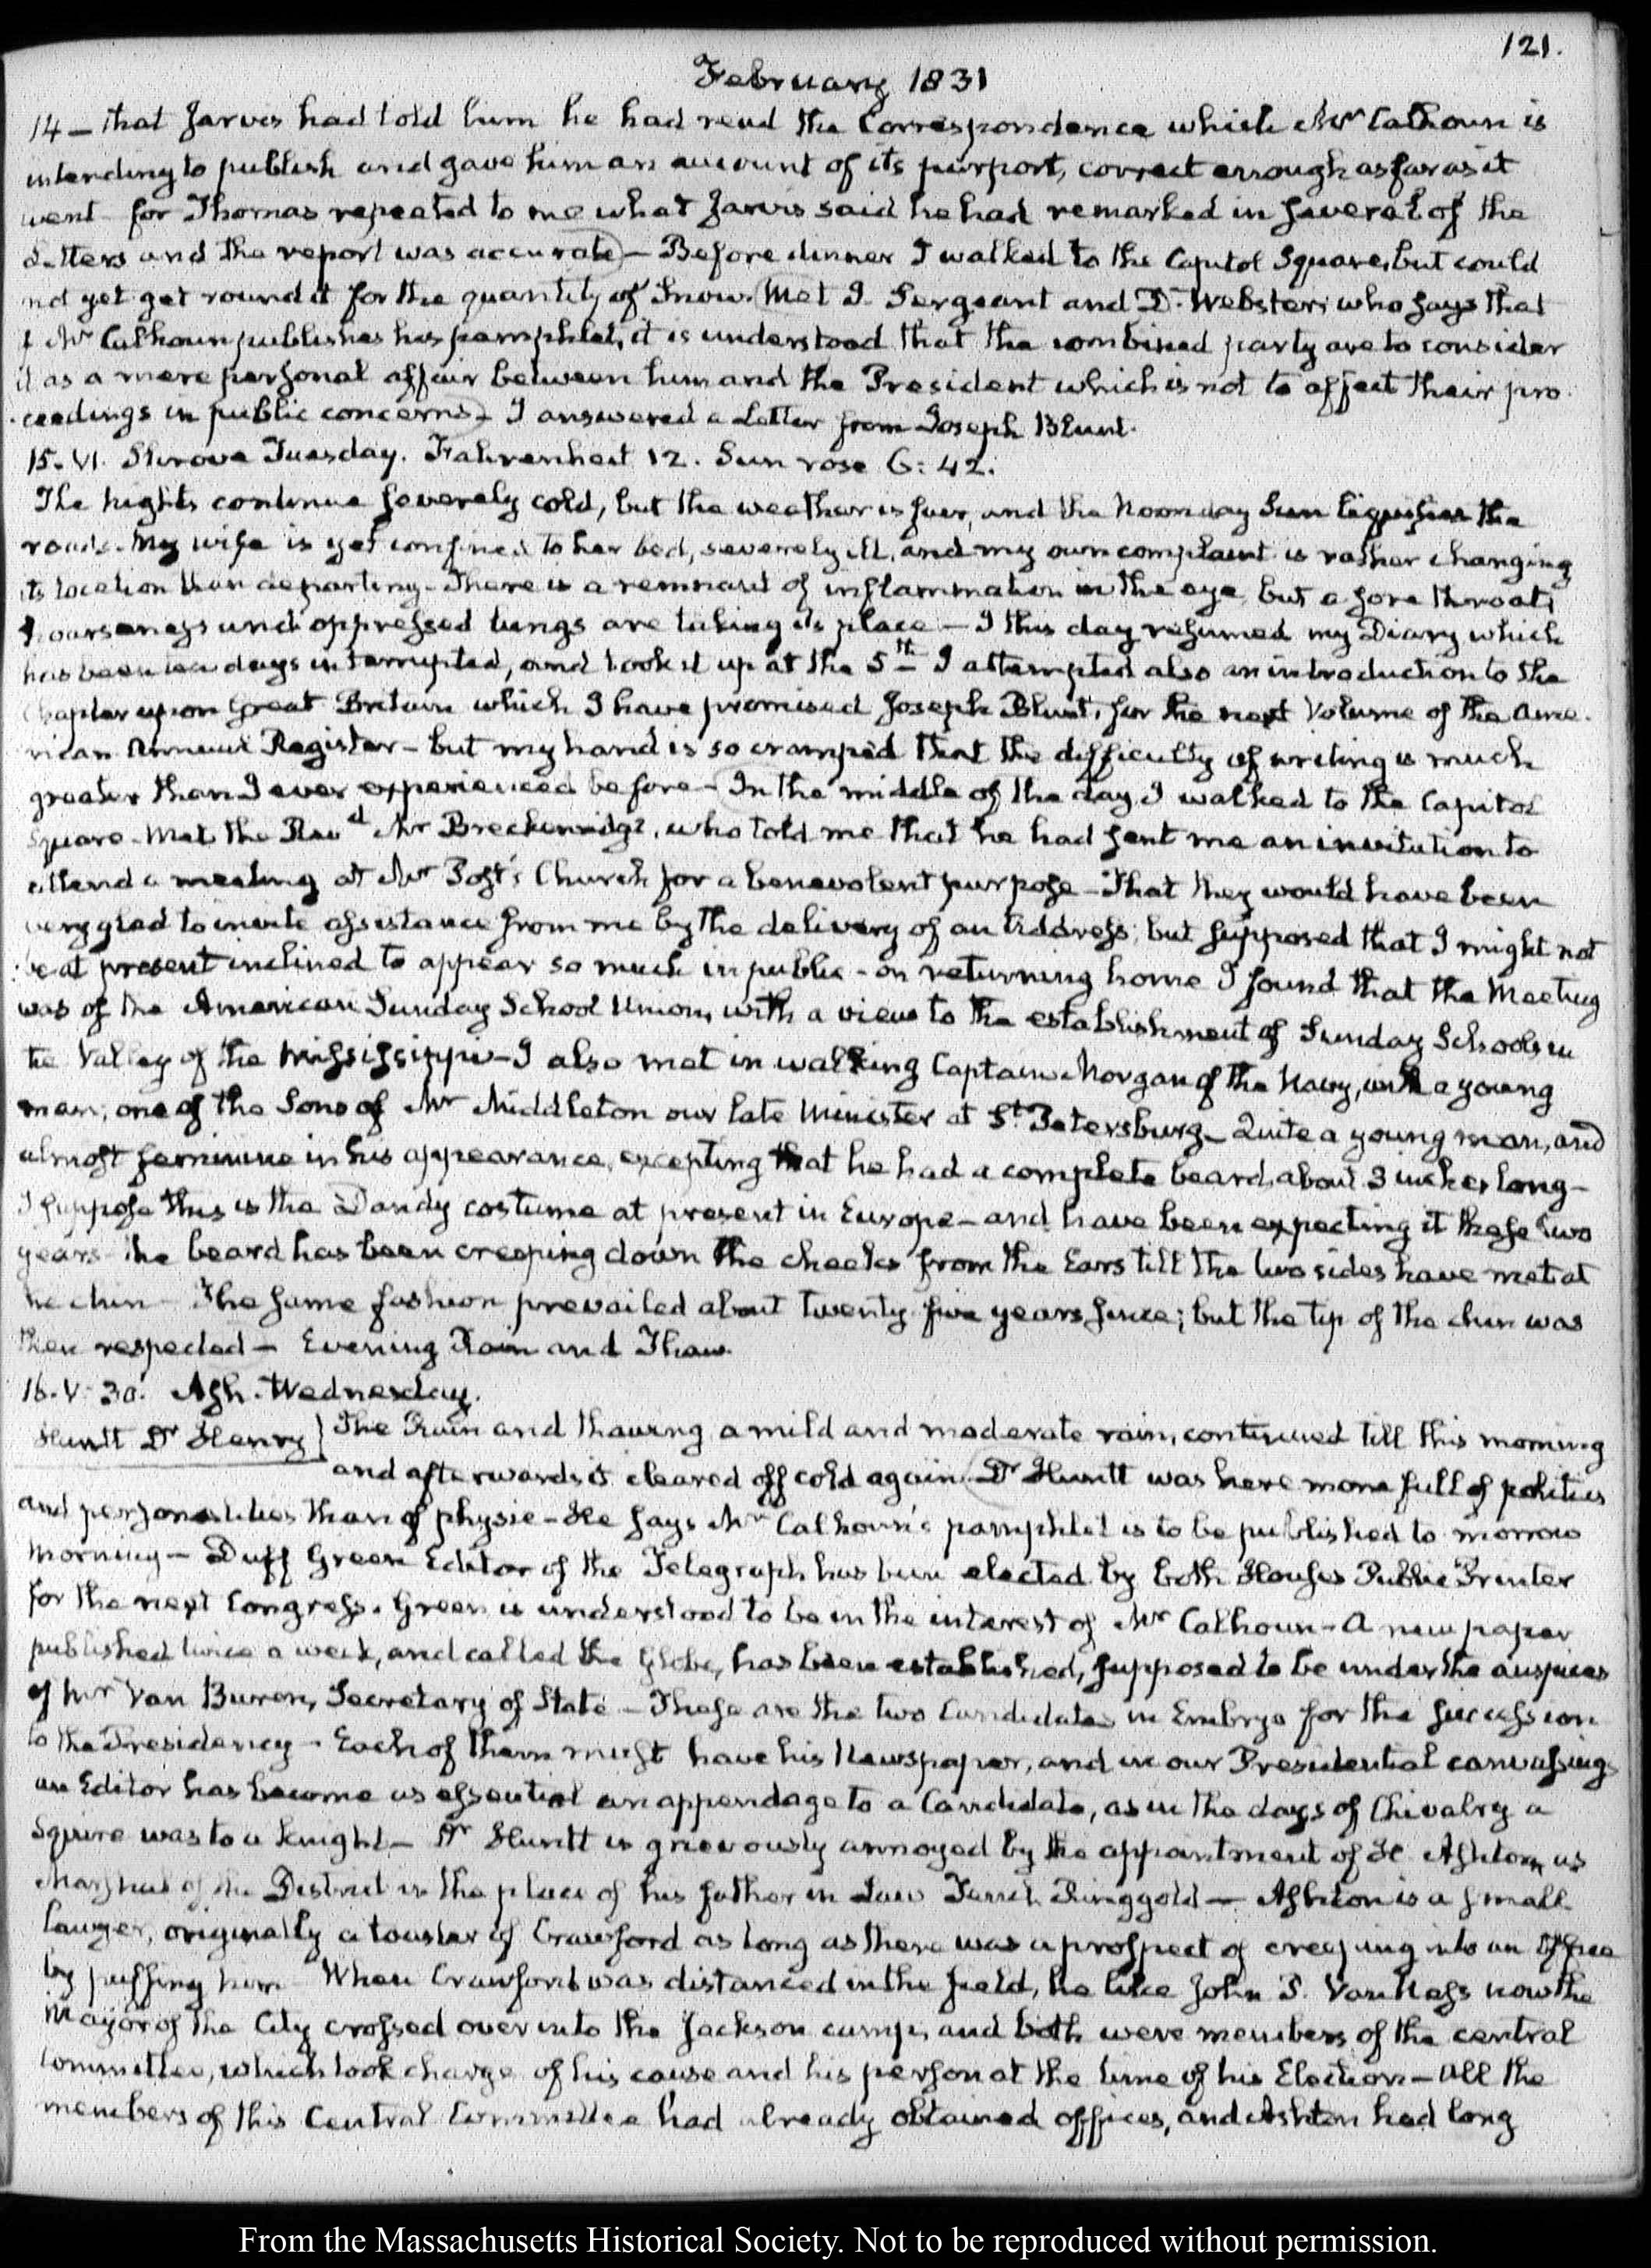 121.
February 1831
14 – that Jarvis had told him he had read the Correspondence which Mr Calhoun is
intending to publish and gave him an account of its purport, correct enough as far as it
went for Thomas repeated to me what Jarvis said he had remarked in several of the
Letters and the report was accurate – Before dinner I walked to the Capitol Square, but could
not yet get round it for the quantity of Snow. Met J. Sergeant and D. Webster; who says that
if Mr Calhoun publishes his pamphlet, it is understood that the combined party are to consider
it as a mere personal affair between him and the President which is not to affect their pro-
ceedings in public concerns – I answered a Letter from Joseph Blunt.
15. VI. Shrove Tuesday. Fahrenheit 12. Sun rose 6:42.
The nights continue severely cold, but the weather is fair, and the Noonday Sun liquifies the
roads. My wife is yet confined to her bed, severely ill, and my own complaint is rather changing
its location than departing – There is a remnant of inflammation in the eye, but a sore throat,
hoarseness and oppressed lungs are taking its place – I this day resumed my Diary which
has been ten days interrupted, and took it up at the 5th I attempted also an introduction to the
Chapter upon Great Britain which I have promised Joseph Blunt, for the next Volume of the Ame-
rican Annual Register – but my hand is so cramped that the difficulty of writing is much
greater than I ever experienced before – In the middle of the day I walked to the Capitol
Square. Met the Revd Mr Breckenridge, who told me that he had sent me an invitation to
attend a meeting at Mr Post's Church for a benevolent purpose – That they would have been
very glad to invite assistance from me by the delivery of an Address; but supposed that I might not
be at present inclined to appear so much in public – on returning home I found that the Meeting
was of the American Sunday School Union, with a view to the establishment of Sunday Schools in
the Valley of the Mississippi – I also met in walking Captain Morgan of the Navy, with a young
man, one of the Sons of Mr Middleton our late Minister at St Petersburg – Quite a young man, and
almost feminine in his appearance, excepting that he had a complete beard, about 3 inches long –
I suppose this is the Dandy costume at present in Europe – and have been expecting it these two
years – the beard has been creeping down the cheeks from the Ears till the two sides have met at
the chin – The same fashion prevailed about twenty five years since; but the tip of the chin was
then respected – Evening Rain and Thaw.
16. V:30. Ash. Wednesday.
Huntt Dr Henry} The Rain and thawing a mild and moderate rain, continued till this morning
and afterwards it cleared off cold again. Dr Huntt was here more full of politics
and personalities than of physic – He says Mr Calhoun's pamphlet is to be published to morrow
Morning – Duff Green Editor of the Telegraph has been elected by both Houses Public Printer
for the next Congress. Green is understood to be in the interest of Mr Calhoun – A new paper
published twice a week, and called the Globe, has been established, supposed to be under the auspices
of Mr Van Buren, Secretary of State – These are the two Candidates in Embryo for the succession
to the Presidency – Each of them must have his Newspaper, and in our Presidential canvassings
an Editor has become as essential an appendage to a Candidate, as in the days of Chivalry a
Squire was to a knight – Dr Huntt is grievously annoyed by the appointment of H. Ashton, as
Marshal of the District in the place of his father in Law Tench Ringgold – Ashton is a small
Lawyer, originally a toaster of Crawford as long as there was a prospect of creeping into an Office
by puffing him When Crawford was distanced in the field, he like John P. Van Ness now the
Mayor of the City crossed over into the Jackson camp, and both were members of the central
Committee, which took charge of his cause and his person at the time of his Election – All the
members of this Central Committee had already obtained offices, and Ashton had long
From the Massachusetts Historical Society. Not to be reproduced without permission.